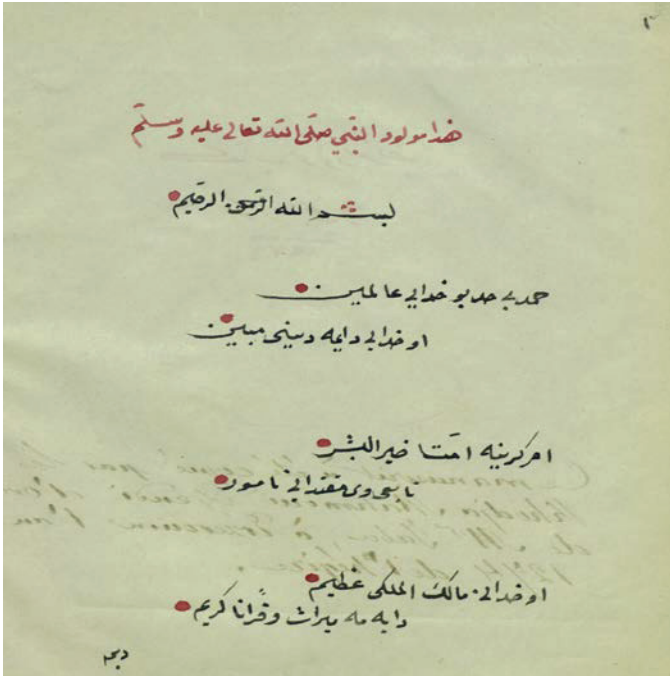 هذا مولود النبي صلّى الله تعالى عليه وسلّم
بسم الله الرحمن الرحيم
حمد بي حد بو خدايي عالمين
او خدايي دايمه ديني مبين
امر كرينه امّتا خير البشر
تابعى وى مقتدايي نامور
او خدايي مالك الملكى عظيم
دايه مه ميراث وقرانا كريم